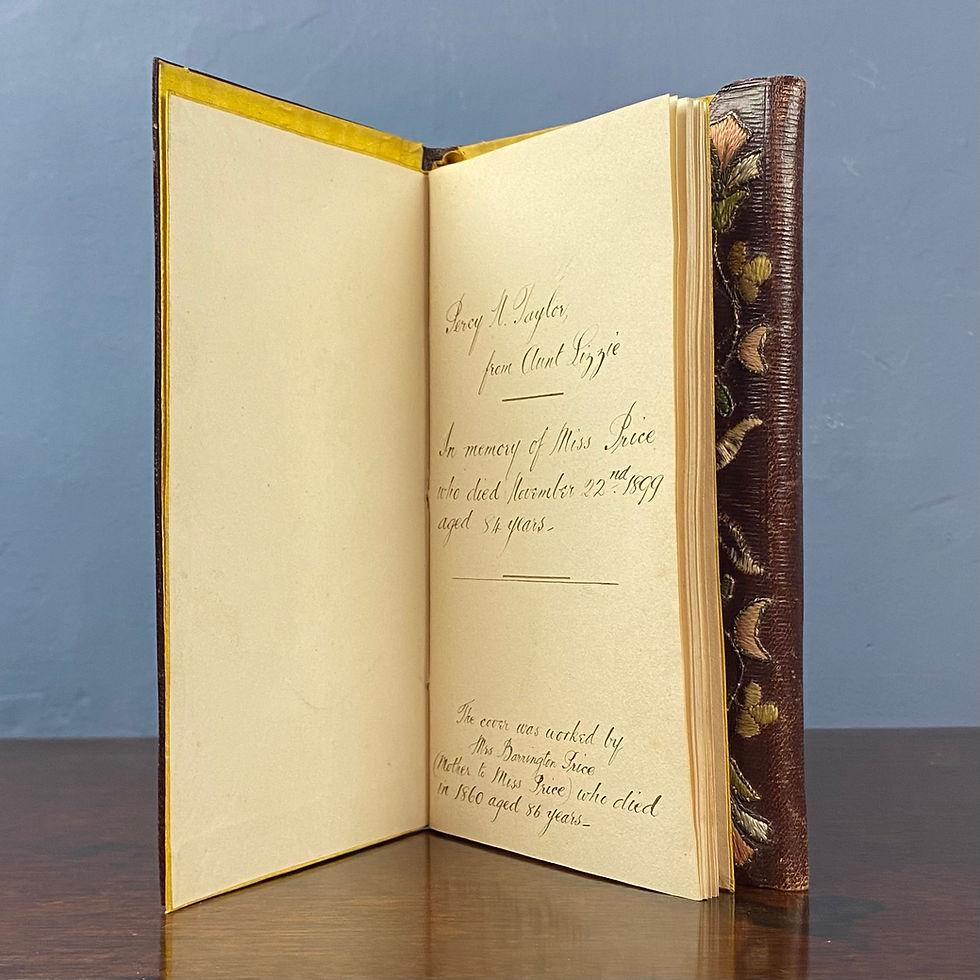 Percy A. Taylor,
from Aunt Lizzie
In memory of Miss Price
who died November 22nd 1899
aged 84 years_
The cover was worked by
Mrs Barrington Price
(Mother to Miss Price) who died
in 1860 aged 86 years_